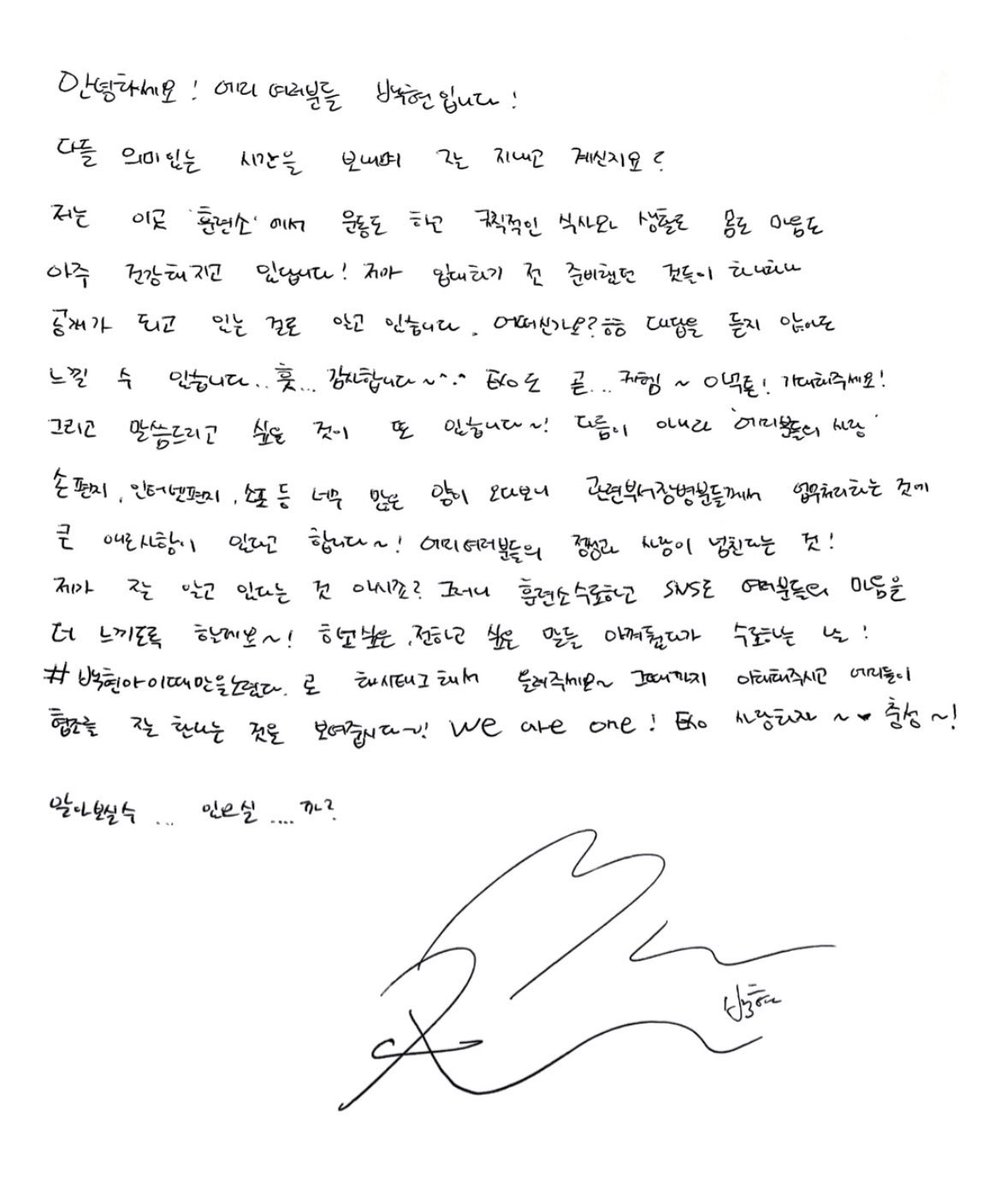 안녕하세요! 에리 여러분들 백현입니다!
다들 의미있는 시간을 보내며 잘 지내고 계신지요?
저는 이곳 '훈련소'에서 운동도 하고 규칙적인 식사와 생활로 몸도 마음도
아주 건강해지고 있답니다! 제가 입대하기 전 준비했던 것들이 하나하나
공개가 되고 있는 걸로 알고 있습니다. 어떠신가요? ㅎㅎ 대답을 듣지 않아도
느낄 수 있습니다.. 훗... 감사합니다~^.^ EXO도 곧... 커험~ 이넉틑! 기대해주세요!
그리고 말씀드리고 싶은 것이 또 있습니다~! 다름이 아니라 '에리분들의 사랑'
손편지, 인터넷편지, 소포 등 너무 많은 양이 오다보니 관련부서장병분들께서 업무처리하는 것에
큰 애로사항이 있다고 합니다~! 에리여러분들의 정성과 사랑이 넘친다는 것!
제가 잘 알고 있다는 것 아시죠? 그러니 훈련소수료하고 SNS로 여러분들의 마음을
더 느끼도록 할게요~! 하고싶은, 전하고 싶은 말들 아껴뒀다가 수료하는 날!
#백현아이때만을노렸다. 로 해시태그해서 올려주세요~ 그때까지 아껴주시고 에리들이
협조를 잘 한다는 것을 보여줍시다~! We are one! EXO 사랑하자 ~ ♥ 충성~!
알아보실수 ... 있으실 .... 까?
백현